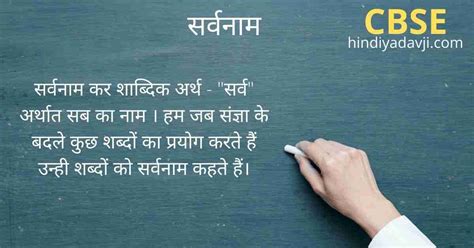 सर्वनाम
CBSE
hindiyadavji.com
सर्वनाम कर शाब्दिक अर्थ - "सर्व"
अर्थात सब का नाम । हम जब संज्ञा के
बदले कुछ शब्दों का प्रयोग करते हैं
उन्ही शब्दों को सर्वनाम कहते हैं।